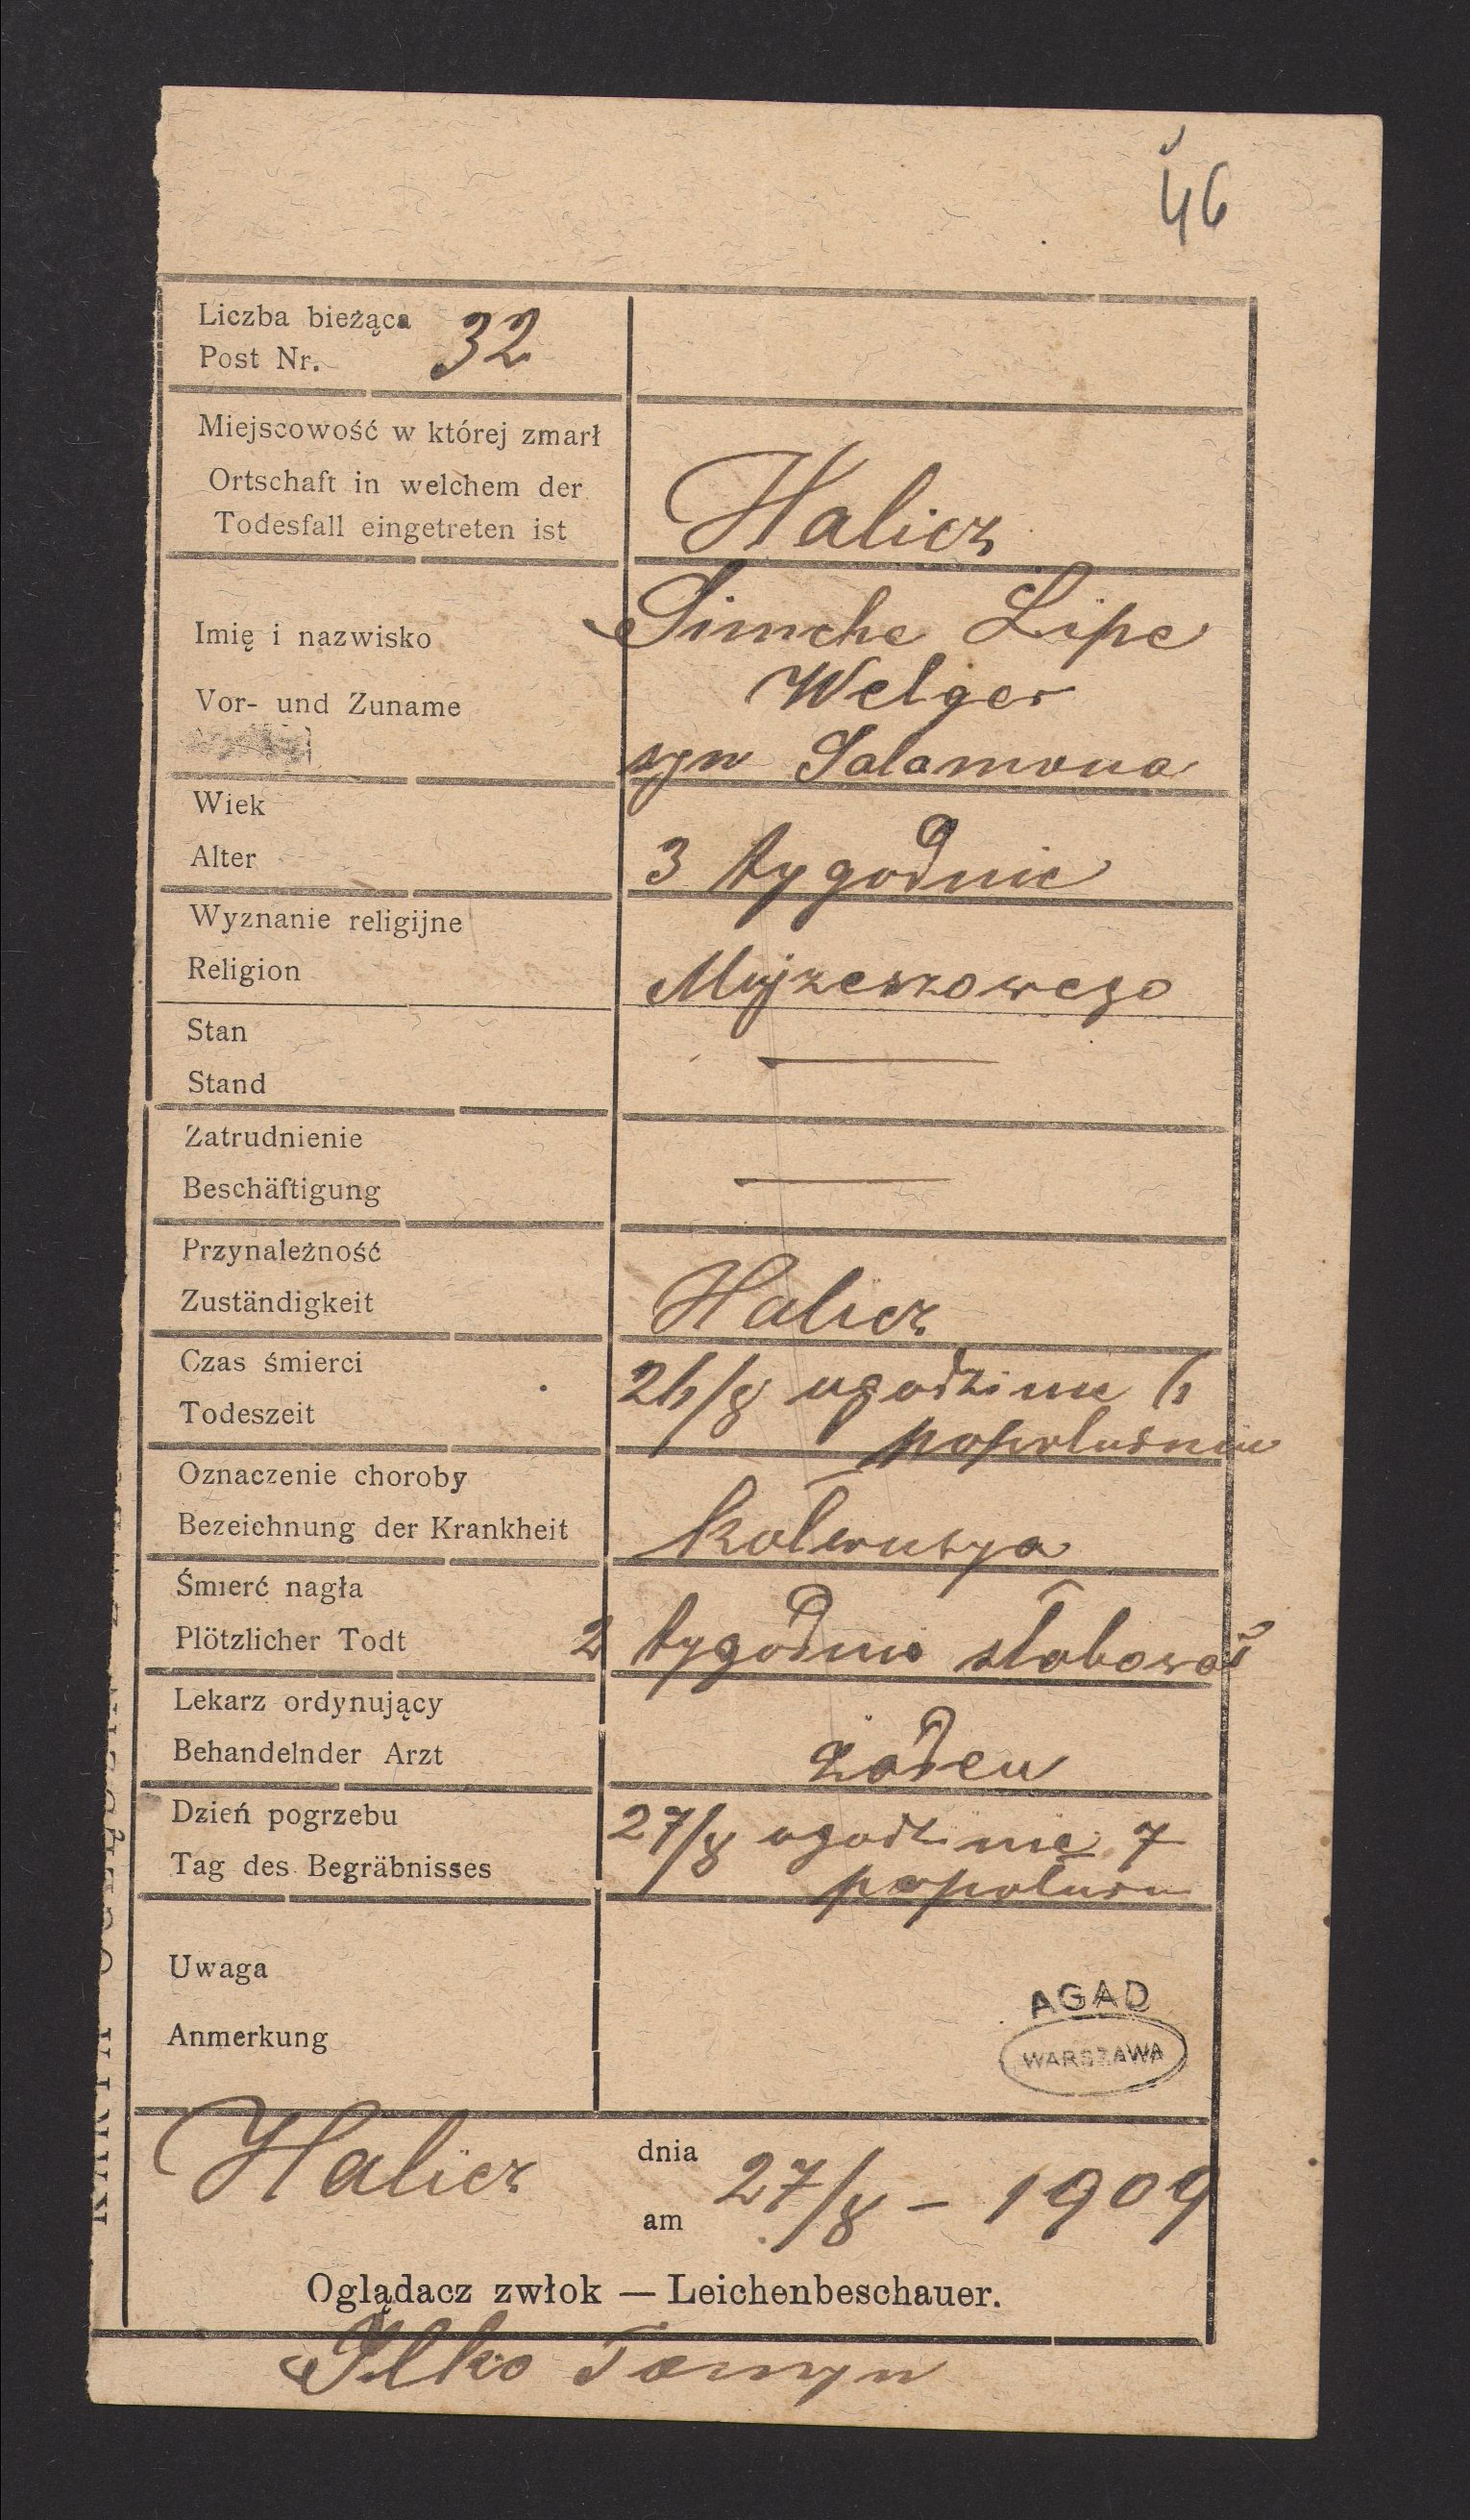 46
Liczba bieżąca
Post Nr. 32
Miejscowość w której zmarł
Ortschaft in welchem der
Todesfall eingetreten ist
Halicz
Imię i nazwisko
Vor- und Zuname
Simche Lipe
Welger
syn Salamona
Wiek
Alter
3 tygodnie
Wyznanie religijne
Religion
Mojzeszowego
Stan
Stand
—
Zatrudnienie
Beschäftigung
—
Przynależność
Zuständigkeit
Halicz
Czas śmierci
Todeszeit
26/8 ugodzinie 6
popołudniu
Oznaczenie choroby
Bezeichnung der Krankheit
Śmierć nagła
Plötzlicher Todt
2 tygodnie słabował
Lekarz ordynujący
Behandelnder Arzt
żaden
Dzień pogrzebu
Tag des Begräbnisses
27/8 ogodzinie 7
popołudn
Uwaga
Anmerkung
AGAD
WARSZAWA
Halicz
dnia
am
27/8 – 1909
Oglądacz zwłok — Leichenbeschauer.
Ilko Tomyn